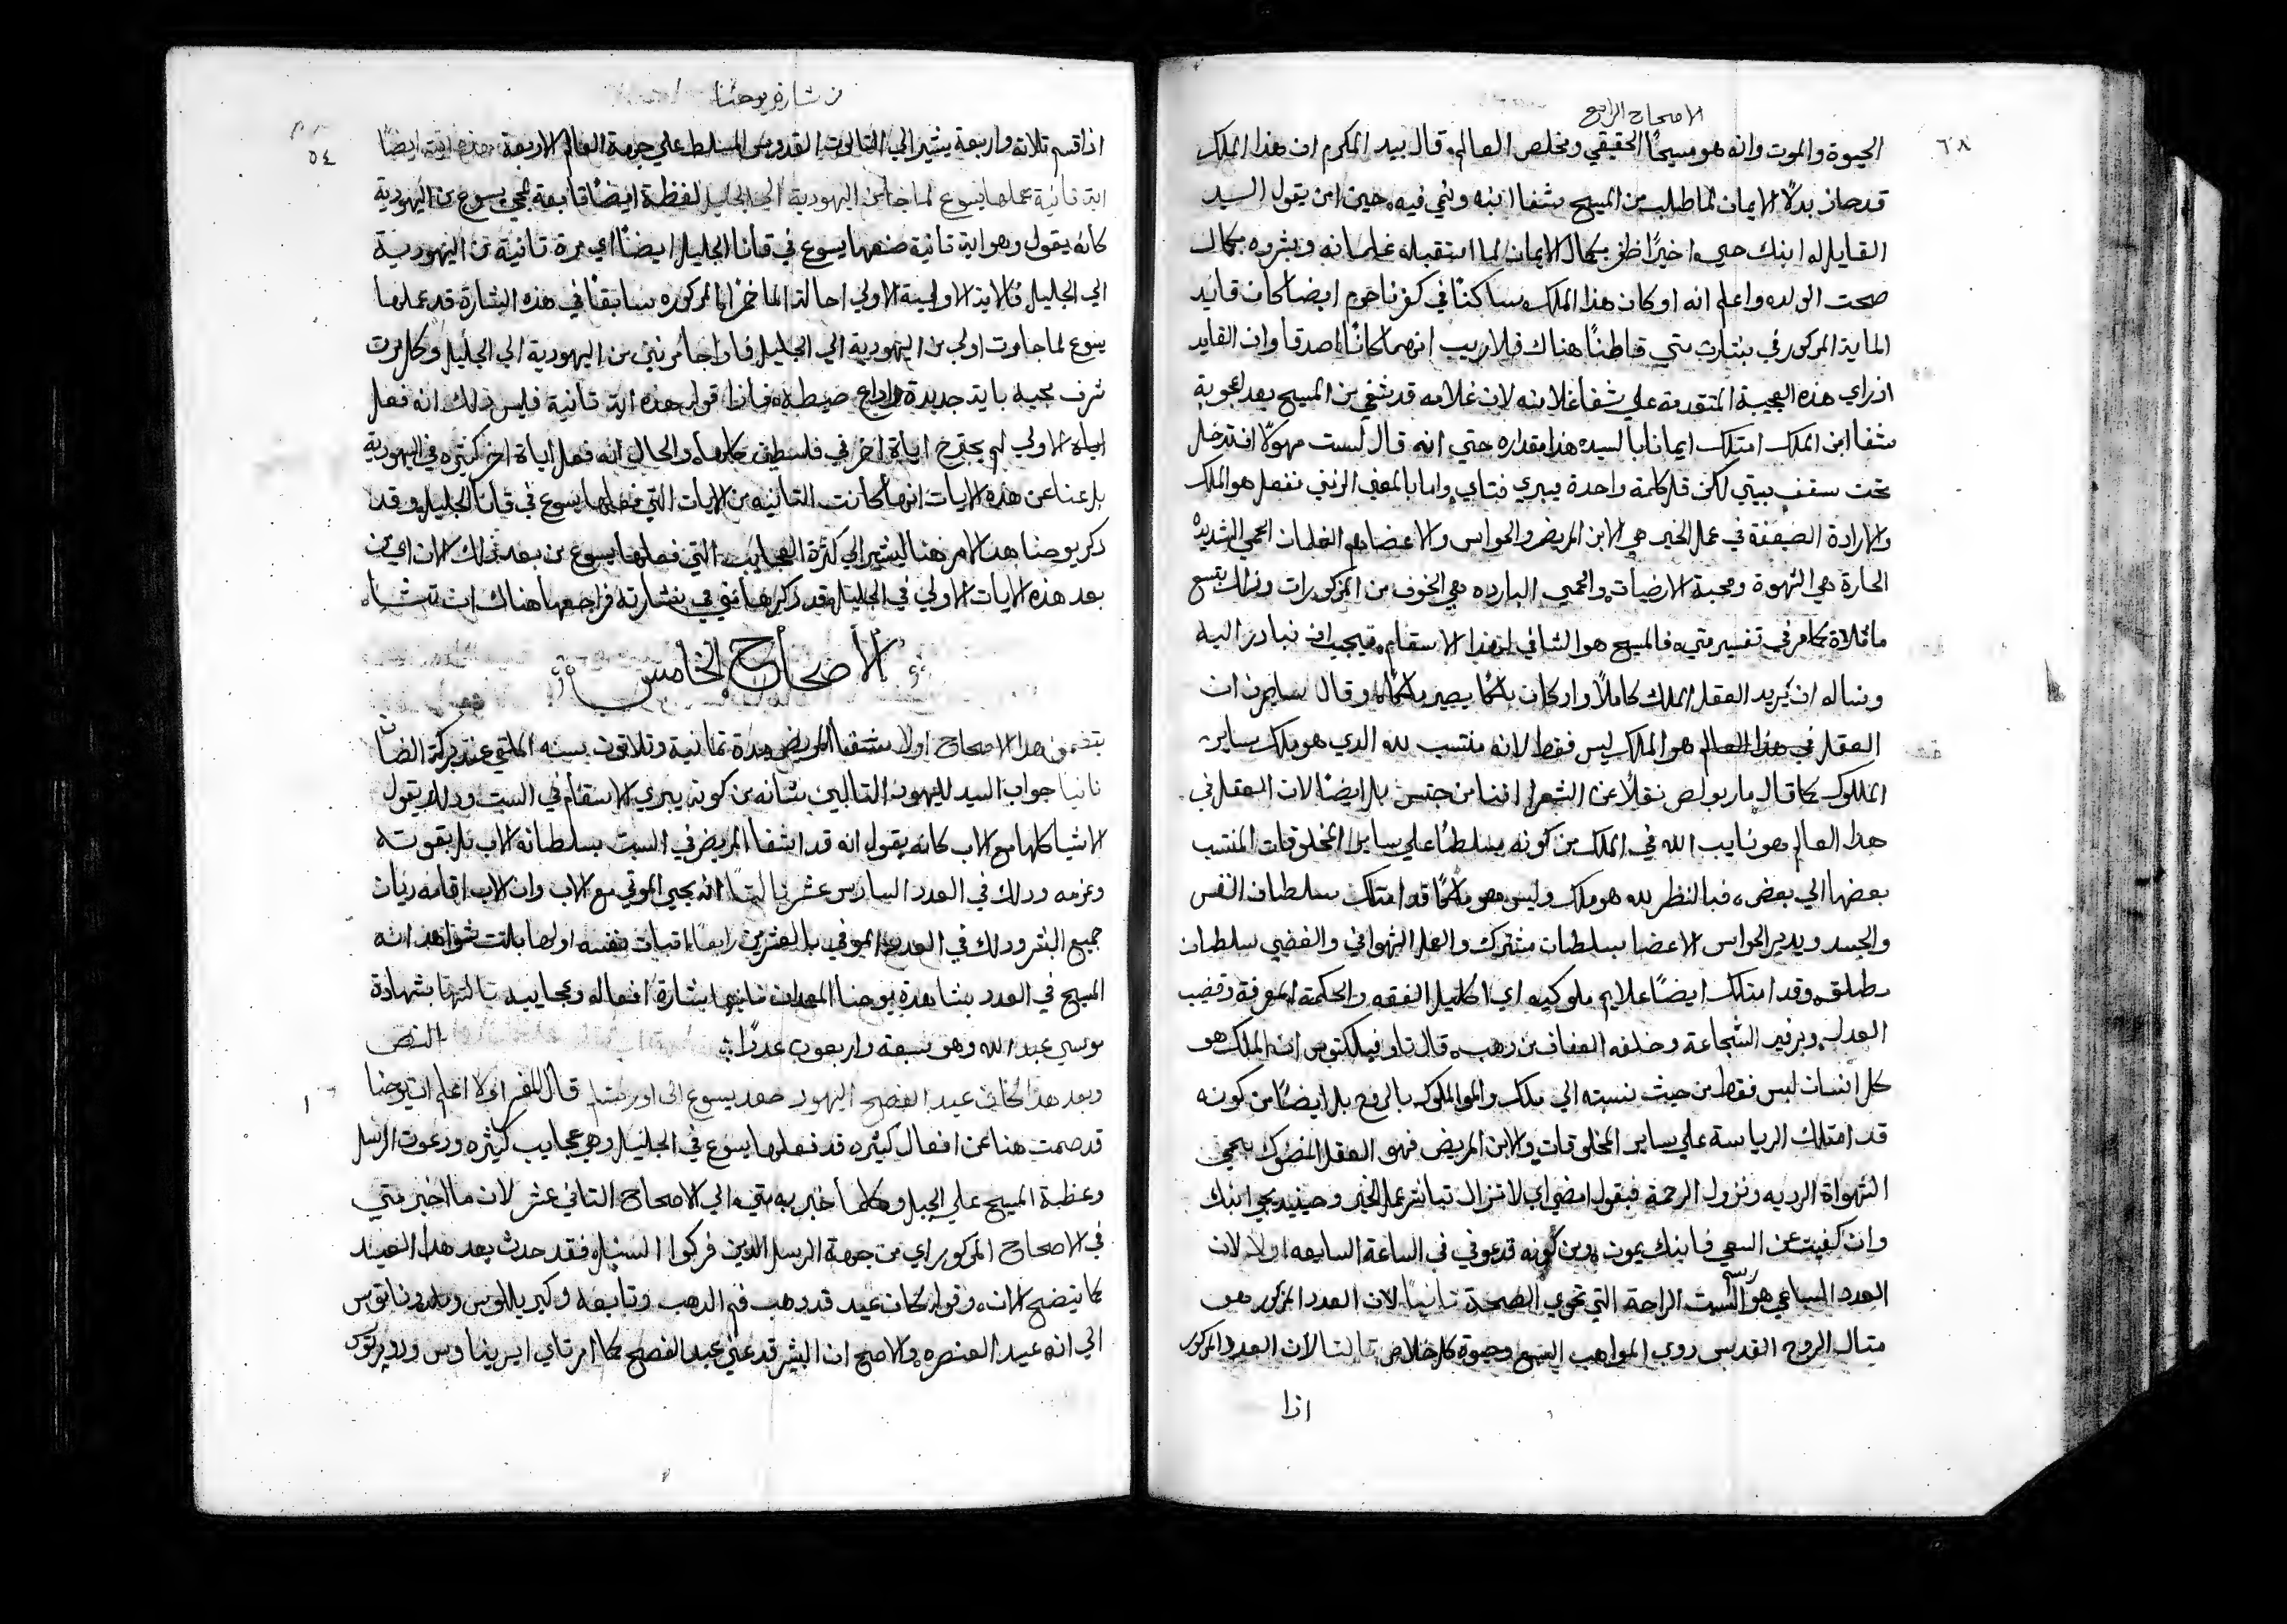 الاصحاح الرابع
٦٨
الحيوة والموت وانه هو مسيحًا الحقيقي ومخلص العالم. قال بيد المكرم ان هذا الملك
قد حاز بدلًا الايمان لما طلب من المسيح شفا ابنه ونمي فيه حين امن بقول السيد
القايل له ابنك حي. اخيرًا ظفر بكمال الايمان لما استقبله غلمانه وبشروه بكمال
صحت الولد. واعلم انه اذ كان هذا الملك ساكنًا في كفرناحوم ايضا كان قايد
الماية المذكور في بشارت متي قاطنًا هناك فلا ريب انهما كانا اصدقا وان القايد
اذ راي هذه العجيبة المتقدمة علي شفا غلامه لان غلامه قد شفي من المسيح بعد اعجوبة
شفا ابن الملك امتلك ايمانا بالسيد هذا مقداره حتي انه قال لست مهولًا ان تدخل
تحت سقف بيتي لكن قل كلمة واحدة فيبري فتاي. واما بالمعني الرمزي نفعل هو الملك
والارادة الضعيفة في عمل الخير هي الابن المريض والحواس والاعضا هم الغلمان الحمي الشديدة
الحارة هي الشهوة ومحبة الارضيات والحمي الباردة هي الخوف من المذكورات وذلك يتسع
ما قلاة كما مر في تفسير متي. فالمسيح هو الشافي لهذا الاسقام. فيجب ان نبادر اليه
ونساله ان يريد العقل الملك كاملًا واركان
العقل في هذا العالم هو الملك ليس فقط لانه منتسب لله الذي هو ملك ساير
الملوك كما قال مار بولص نقلًا عن الشعرا اننا من جنس بل ايضًا لان العقل في
هذا العالم هو نايب الله في الملك من كونه مسلطنًا علي ساير المخلوقات المنتسب
بعضها الي بعض. فبالنظر لله هو ملك وليس هو ملكًا قد امتلك سلطان النفس
والجسد ويدير الحواس الاعضا بسلطان مشترك والعل الشهواني والغضبي سلطان
مطلق. وقد امتلك ايضًا علايم ملوكيه اي اكليل الفقه والحكمة المعرفة وقضيب
العدل وبرفير الشجاعة وخلفه العفاف من ذهب. قال تاوفيلكتوس ان الملك هو
كل انسان ليس فقط من حيث نسبته الي ملك والموالملوك بالروح بل ايضًا من كونه
قد امتلك الرياسة علي ساير المخلوقات والابن المريض فهو العقل المضوك بحمي
الشهواة الرديه ونزول الرحمة فيقول امضي اي لا تزال تباشر عمل الخير وحينيذ يحيي ابنك
وان كففت عن السعي فابنك يموت. ومن كونه قد عوفي في الساعة السابعه اولا لان
العدد السباعي هو رسم السبت الراحة التي تحوي الصحة ثانيًا لان العدد المزبور هو
متال الروح القدس ذوي المواهب السبع وحيوة كل خلاص تالتا لان العدد المذكور
اذا
من بشارة يوحنا
٥٤
اذا قسم تلاتة واربعة يشير الي التالوت القدوس المسلط علي جهة العالم الاربعة هذه ايضًا
اية تانية عملها يسوع لما جا من اليهودية الي الجليل لفظة ايضًا تابعة لمجي يسوع من اليهودية
كانه يقول وهو اية تانية صنعها يسوع في قانا الجليل ايضًا اي مرة تانية من اليهودية
الي الجليل فالاية الاولية الاولي احالة الما خمرًا المذكوره سابقًا في هذه البشارة قد عملها
يسوع لما جا مرت اولي من اليهودية الي الجليل فاذا جا مرتين من اليهودية الي الجليل وكل مرت
شرف مجيه باية جديدة
الاولي لم يجترح اياة اخر في فلسطين كلها. والحال انه فعل اياة اخر كتيره في اليهودية
بل عنا عن هذه الايات انها كانت التانيه من الايات التي فعلها يسوع في قانا الجليل. وقد
ذكر يوحنا هذا الامر هنا ليشير الي كترة العجايب التي فعلها يسوع من بعد ذلك الان اي من
بعد هذه الايات الاولي في الجليل قد ذكرها متي في بشارته فراجعها هناك ان تشاء.
الاصحاح الخامس
يتضمن هذا الاصحاح اولا شفا المريض مدة تمانية وتلاتون سنه الملقي عند بركة الضان
تانيا جواب السيد لليهود التالبين بشانه من كونه يبري الاسقام في السبت وذلك بقول
الاشيا كلها مع الاب كانه يقول انه قد اشفا المريض في السبت بسلطانة الاب بل بقوته
وعزمه وذلك في العدد السادس عشر تالتا انه يحيي الموتي مع الاب وان الاب اقامه ديان
جميع البشر وذلك في العدد الموفي بالعشرين رابعًا اتبات نفسه اولها بتلت شواهد انه
المسيح في العدد بشاهدة يوحنا المعمدان تانيها بشارة افعاله وعجايبه تالتها بشهادة
موسي عبد الله وهو سبعة واربعون عددًا
النص
وبعد هذا كان عيد الفصح اليهود صعد يسوع الي اورشليم قال المفسر اولا اعلم ان يوحنا
١
قد صمت هنا عن افعال كتيره قد فعلها يسوع في الجليل وهي عجايب كتيره ودعوت الرسل
وعظة المسيح علي الجبل وكلما اخبر به متي الي الاصحاح التاني عشر لان ما اخبر متي
في الاصحاح المذكور اي من جهة الرسل الذين فركوا السنبل. فقد حدث بعد هذا العيد
كما يتضح الان. وقوله كان عيد قد ذهب فم الذهب وتابعه وكيريللوس
الي انه عيد العنصره والاصح ان البشير قد عني عيد الفصح كما امر تاي ايريناوس وروبرتوس